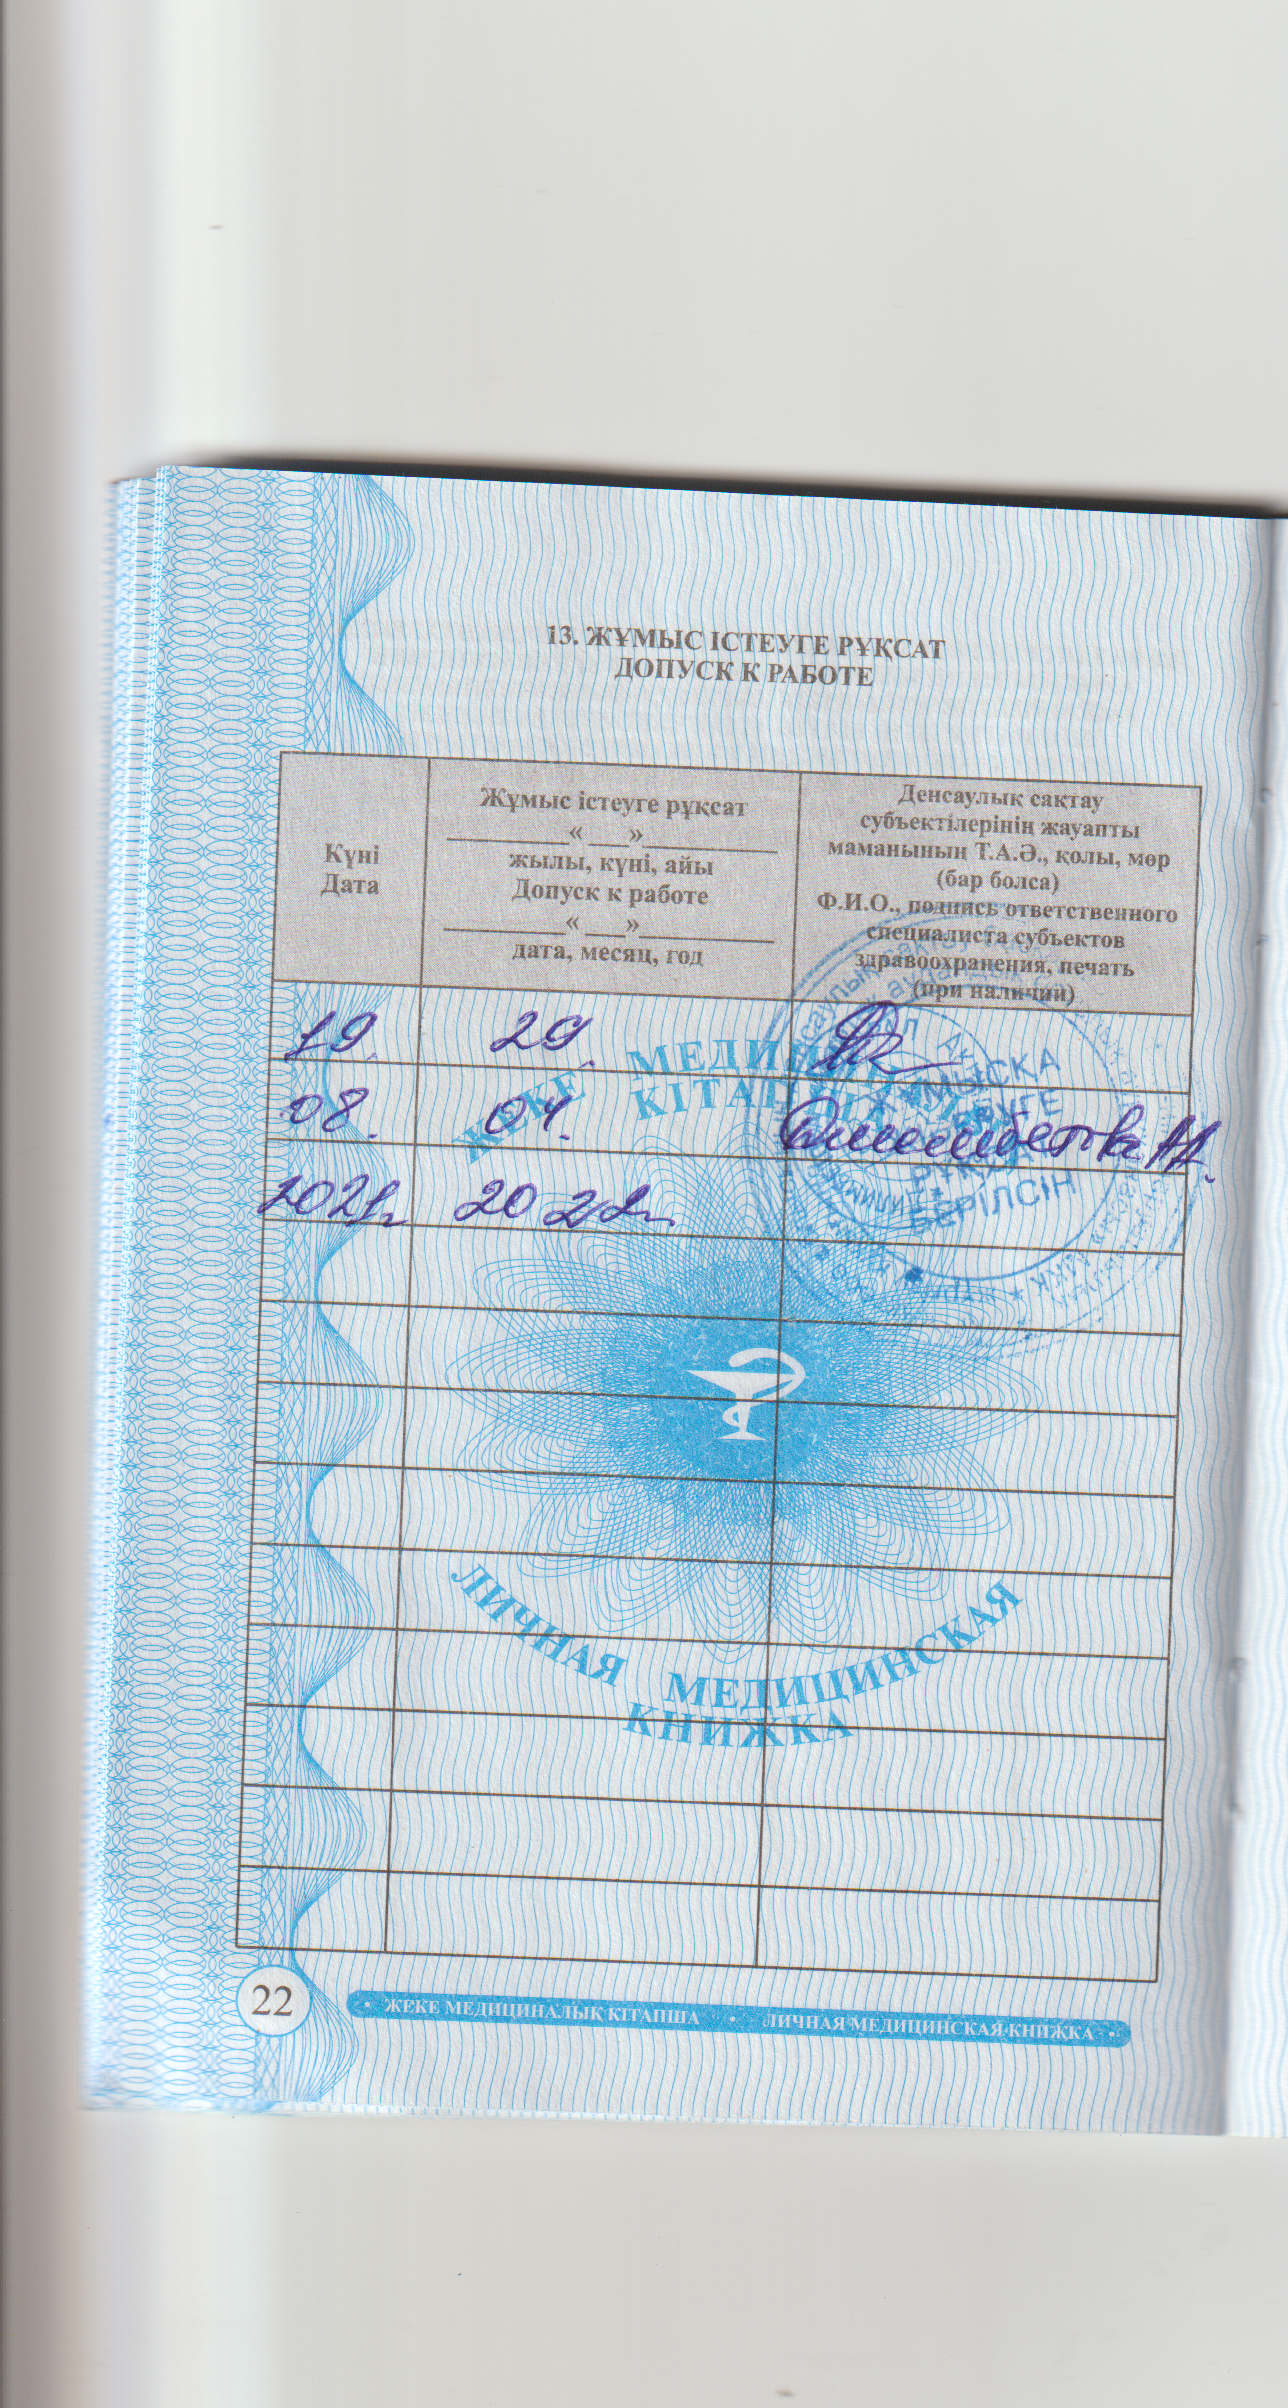 13. ЖҰМЫС ІСТЕУГЕ РҰҚСАТ
ДОПУСК К РАБОТЕ
Күні
Дата
Жұмыс істеуге рұқсат
_________« ___»__________
жылы, күні, айы
Допуск к работе
_________« ___»__________
дата, месяц, год
Денсаулық сақтау
субъектілерінің жауапты
маманының Т.А.Ә., қолы, мөр
(бар болса)
Ф.И.О., подпись ответственного
специалиста субъектов
здравоохранения, печать
(при наличии)
19. 29.
08. 04.
2021г 2022г.
ЖЕКЕ МЕДИ
КІТАП
ЖҰМЫСҚА
РҰҚ
БЕРІЛСІН
ЛИЧНАЯ МЕДИЦИНСКАЯ
КНИЖКА
22
• ЖЕКЕ МЕДИЦИНАЛЫҚ КІТАПША • ЛИЧНАЯ МЕДИЦИНСКАЯ КНИЖКА •